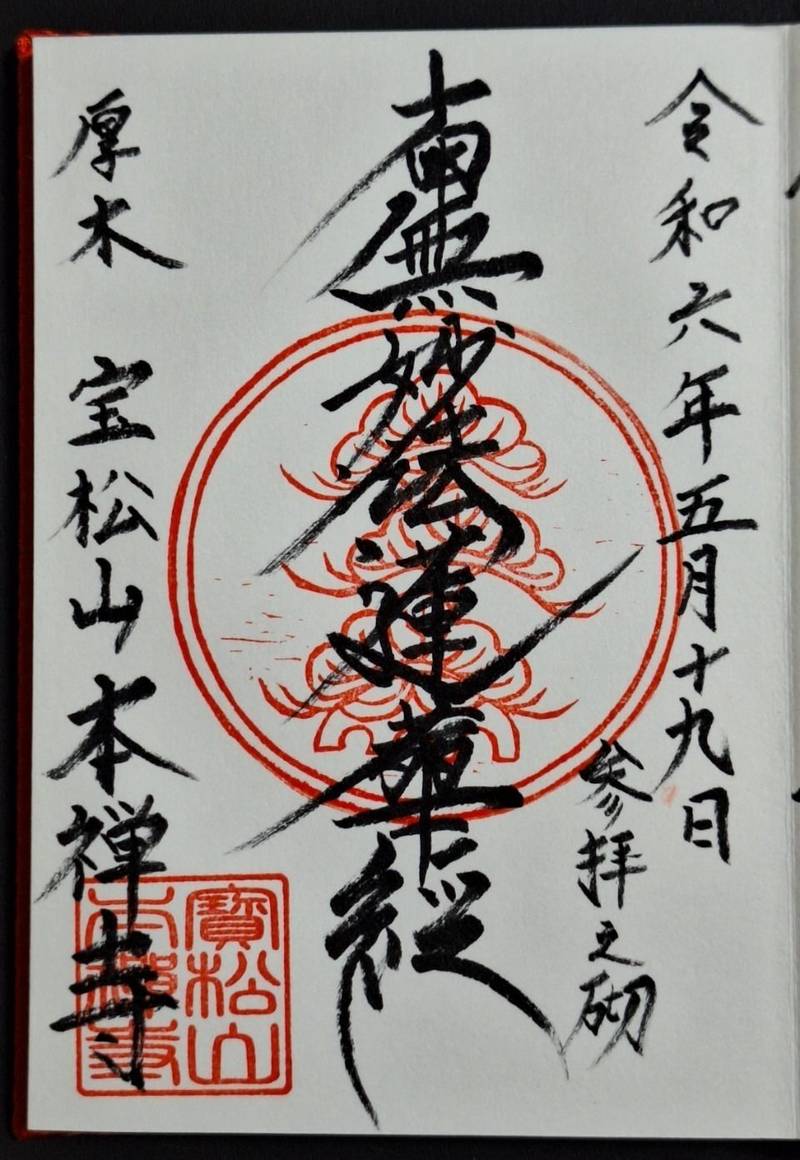 令和六年五月十九日
参拝之砌
南無妙法蓮華経
厚木 宝松山本禅寺
寶松山
本禅寺